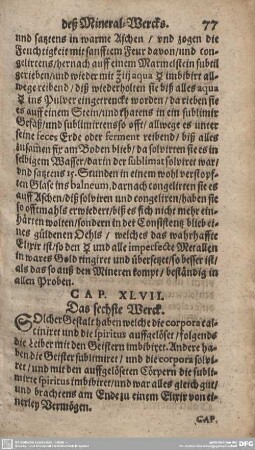 deß Mineral-Wercks. 77
und satzens in warme Aschen / und zogen die
Feuchtigkeit mit sanfftem Feur davon/und con-
gelirtens/hernach auff einem Marmelstein subtil
gerieben/und wieder mit aqua imbibirt all-
wege reibend / diß wiederholten sie biß alles aqua
ins Pulver eingetrenckt worden / da rieben sie
es auff einem Stein/und thatens in ein sublimir
Gefäß/und sublimirtens offt/ allwege es uͤnter
seine Erde oder ferment reibend/ biß alles
zusamen fix am Boden blieb/ da solvirten sie es in
selbigem Wasser/darin der sublimat solviret war/
und satzens 15. Stunden in einem wohl verstopf-
ten Glase ins balneum, darnach congelirten sie es
auff Aschen/diß solviren und congeliren/haben sie
so offtmahls erwiedert/ biß es sich nicht mehr ein-
härten wolten/sondern in der Consistentz bliebei-
nes güldenen Oehls / welches das wahrhafftte
Elixir ist/ so den und alle imperfecte Metallen
in wares Gold tingiret und übersetzet/so besser ist/
als das so auß den Mineren kompt/ beständig in
allen Proben.
CAP. XLVII.
Das sechste Werck.
SOlcher Gestalt haben welche die corpora cal-
ciniret und die spiritus auffgelöset/ folgends
die Leiber mit den Geistern imbibiret. Andere ha-
ben die Geister sublimiret/ und die corpora solvi-
ret/ und mit den auffgelöseten Cörpern die subli-
mirte spiritus imbibiret/und war alles gleich gut/
und brachtens am Ende zu einem Elixir von ei-
nerley Vermögen.
CAP.
DFG